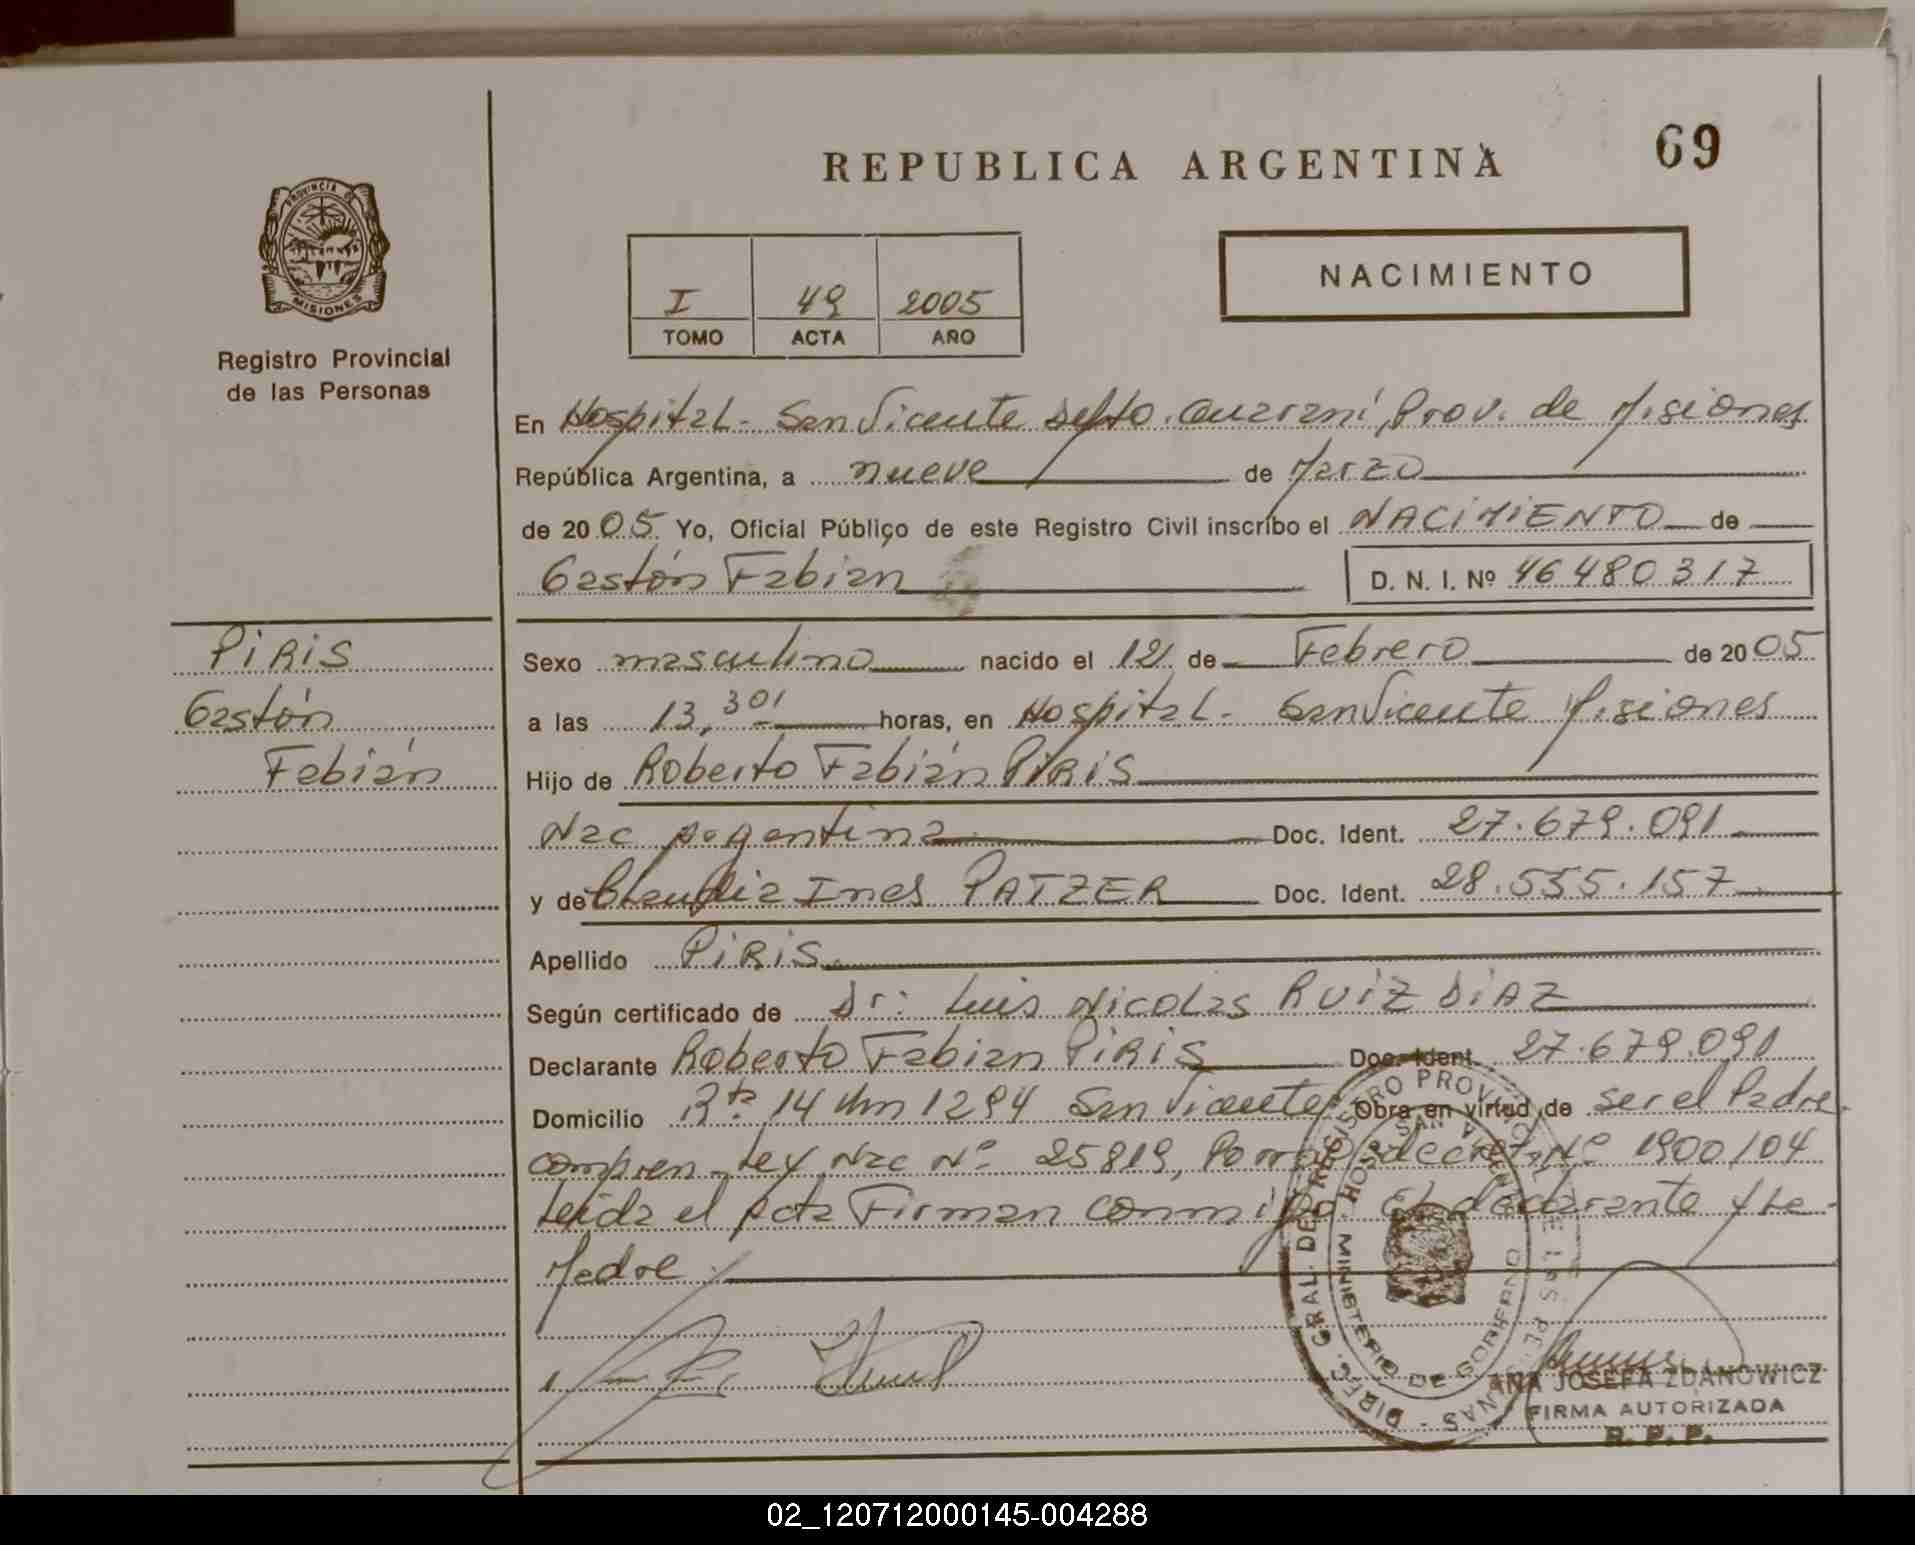 69
REPUBLICA ARGENTINA
PROVINCIA DE
MISIONES
Registro Provincial
de las Personas
I 49 2005
TOMO ACTA AÑO
NACIMIENTO
En Hospital - San Vicente Depto. Guaraní, Prov. de Misiones
República Argentina, a nueve de Marzo
de 2005 Yo, Oficial Público de este Registro Civil inscribo el NACIMIENTO de
Gastón Fabian D. N. I. Nº 46480317
PIRIS
Gastón
Fabián
Sexo masculino nacido el 12 de Febrero de 2005
a las 13,30 horas, en Hospital - San Vicente Misiones
Hijo de Roberto Fabián PIRIS
Nac Argentina Doc. Ident. 27.679.091
y de Claudia Ines PATZER Doc. Ident. 28.555.157
Apellido PIRIS
Según certificado de Dr: Luis Nicolas RUIZ DIAZ
Declarante Roberto Fabian PIRIS Doc. Ident. 27.679.091
Domicilio Rta. 14 Km 1294 San Vicente Obra en virtud de ser el Padre
compren. Ley Nac Nº 25819, decreto Nº 1900/04
Leida el acta Firman conmigo El declarante y la
Madre
DIREC. GRAL. DEL REGISTRO PROVINCIAL DE LAS PERSONAS
MINISTERIO DE GOBIERNO
HOSP. SAN VICENTE
ANA JOSEFA ZDANOWICZ
FIRMA AUTORIZADA
R. P. P.
02_120712000145-004288